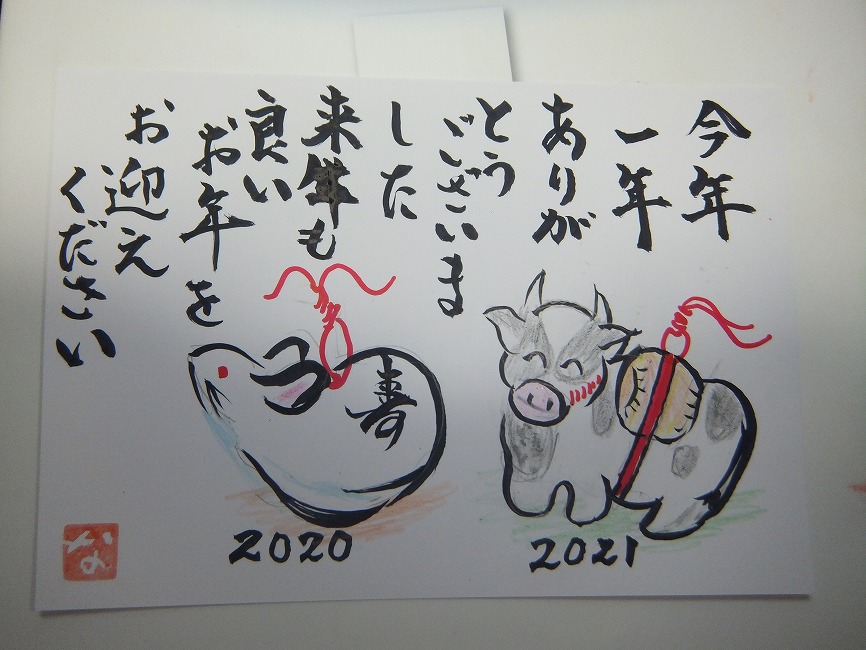 今年
一年
ありが
とう
ございま
した
来年も
良い
お年を
お迎え
ください
寿
2020
2021
な